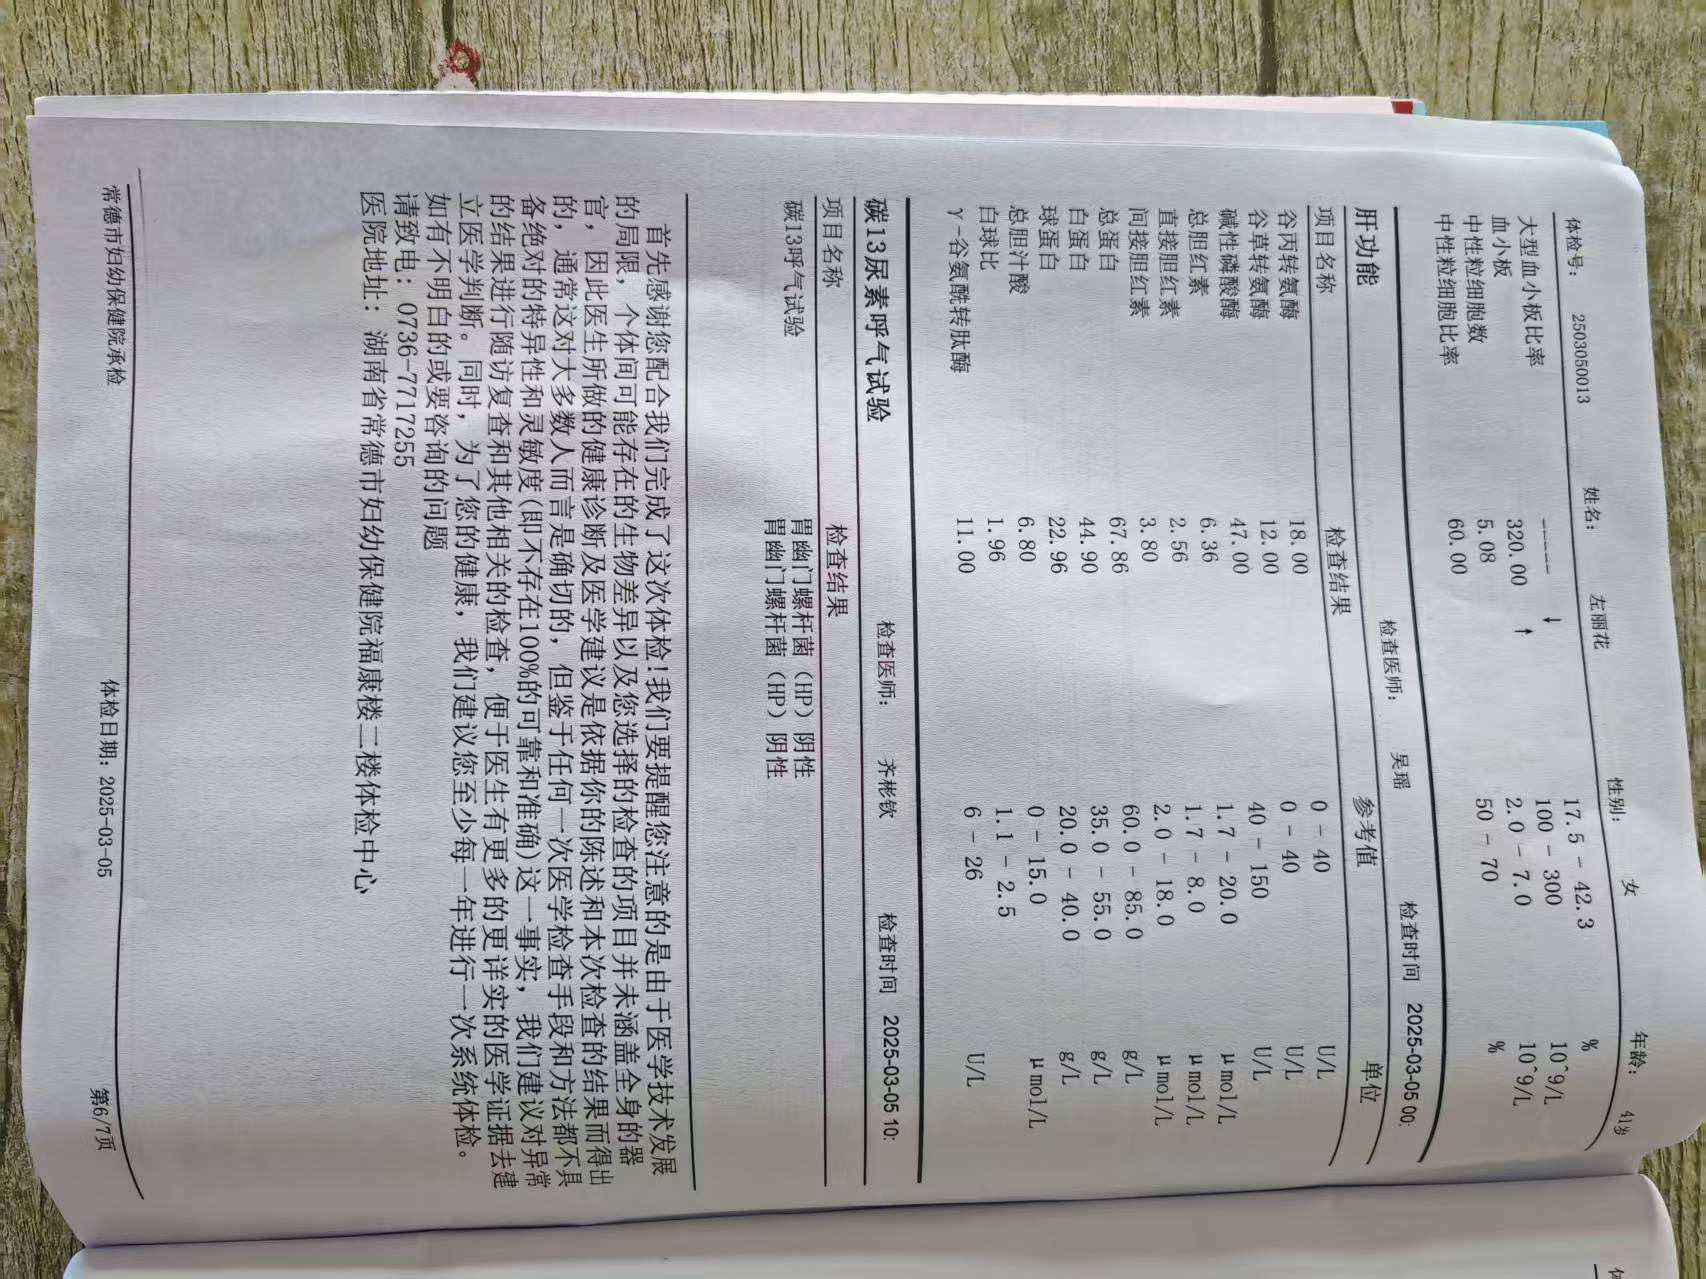 体检号: 2503050013 姓名: 左丽花 性别: 女 年龄: 41岁
大型血小板比率 ----- ↓ 17.5 - 42.3 %
血小板 320.00 ↑ 100 - 300 10^9/L
中性粒细胞数 5.08 2.0 - 7.0 10^9/L
中性粒细胞比率 60.00 50 - 70 %
肝功能 检查医师: 吴瑶 检查时间 2025-03-05 00:
项目名称 检查结果 参考值 单位
谷丙转氨酶 18.00 0 - 40 U/L
谷草转氨酶 12.00 0 - 40 U/L
碱性磷酸酶 47.00 40 - 150 U/L
总胆红素 6.36 1.7 - 20.0 μmol/L
直接胆红素 2.56 1.7 - 8.0 μmol/L
间接胆红素 3.80 2.0 - 18.0 μmol/L
总蛋白 67.86 60.0 - 85.0 g/L
白蛋白 44.90 35.0 - 55.0 g/L
球蛋白 22.96 20.0 - 40.0 g/L
总胆汁酸 6.80 0 - 15.0 μmol/L
白球比 1.96 1.1 - 2.5
γ-谷氨酰转肽酶 11.00 6 - 26 U/L
碳13尿素呼气试验 检查医师: 齐彬钦 检查时间 2025-03-05 10:
项目名称 检查结果
碳13呼气试验 胃幽门螺杆菌（HP）阴性
胃幽门螺杆菌（HP）阴性
首先感谢您配合我们完成了这次体检!我们要提醒您注意的是由于医学技术发展
的局限，个体间可能存在的生物差异以及您选择的检查的项目并未涵盖全身的器
官，因此医生所做的健康诊断及医学建议是依据你的陈述和本次检查的结果而得出
的，通常这对大多数人而言是确切的，但鉴于任何一次医学检查手段和方法都不具
备绝对的特异性和灵敏度(即不存在100%的可靠和准确)这一事实，我们建议对异常
的结果进行随访复查和其他相关的检查，便于医生有更多的更详实的医学证据去建
立医学判断。同时，为了您的健康，我们建议您至少每一年进行一次系统体检。
如有不明白的或要咨询的问题
请致电：0736-7717255
医院地址：湖南省常德市妇幼保健院福康楼二楼体检中心
常德市妇幼保健院承检 体检日期: 2025-03-05 第6/7页